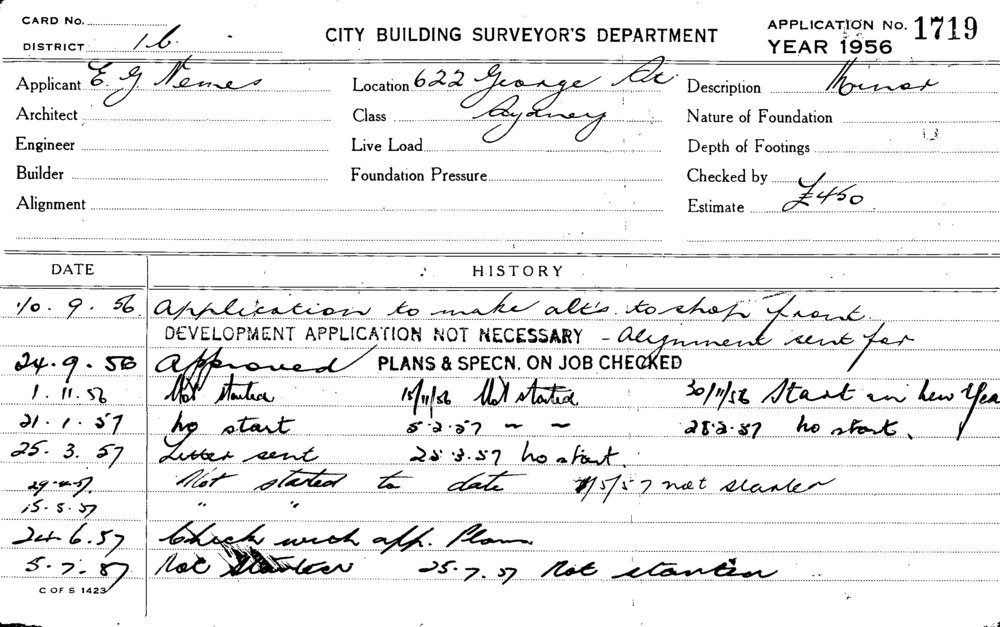 CARD No.
DISTRICT 1b.
CITY BUILDING SURVEYOR'S DEPARTMENT
APPLICATION No. 1719
YEAR 1956
Applicant E G Nemes
Location 622 George St
Description Minor
Architect
Class Sydney
Nature of Foundation
Engineer
Live Load
Depth of Footings
Builder
Foundation Pressure
Checked by
Alignment
Estimate £450
DATE HISTORY
10.9.56 Application to make alts to shop front.
DEVELOPMENT APPLICATION NOT NECESSARY - Alignment sent for
24.9.56 Approved PLANS & SPECN. ON JOB CHECKED
1.11.56 Not started 15/11/56 Not started 30/11/56 Start in new Year
21.1.57 no start 5.2.57 ~ ~ 28.2.57 no start.
25.3.57 Letter sent 28.3.57 no start.
29.4.57 Not started to date 1/5/57 not started
15.5.57 " "
24.6.57 Check with app. Plans
5.7.57 Not started 25.7.57 Not started
C OF S 1423